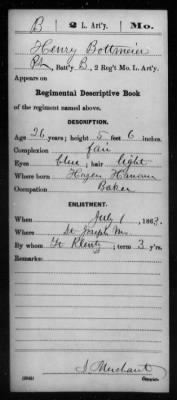 B | 2 L. Art'y. | Mo.
Henry Bottmeier
Pt, Batt'y B, 2 Reg't Mo. L. Art'y.
Appears on
Regimental Descriptive Book
of the regiment named above.
DESCRIPTION.
Age 26 years; height 5 feet 6 inches.
Complexion fair
Eyes blue; hair light
Where born Hagen Hanover
Occupation Baker
ENLISTMENT.
When July 1, 1863.
Where St Joseph Mo.
By whom Lt Klentz; term 3 y'rs.
Remarks:
Merchant
Copyist.